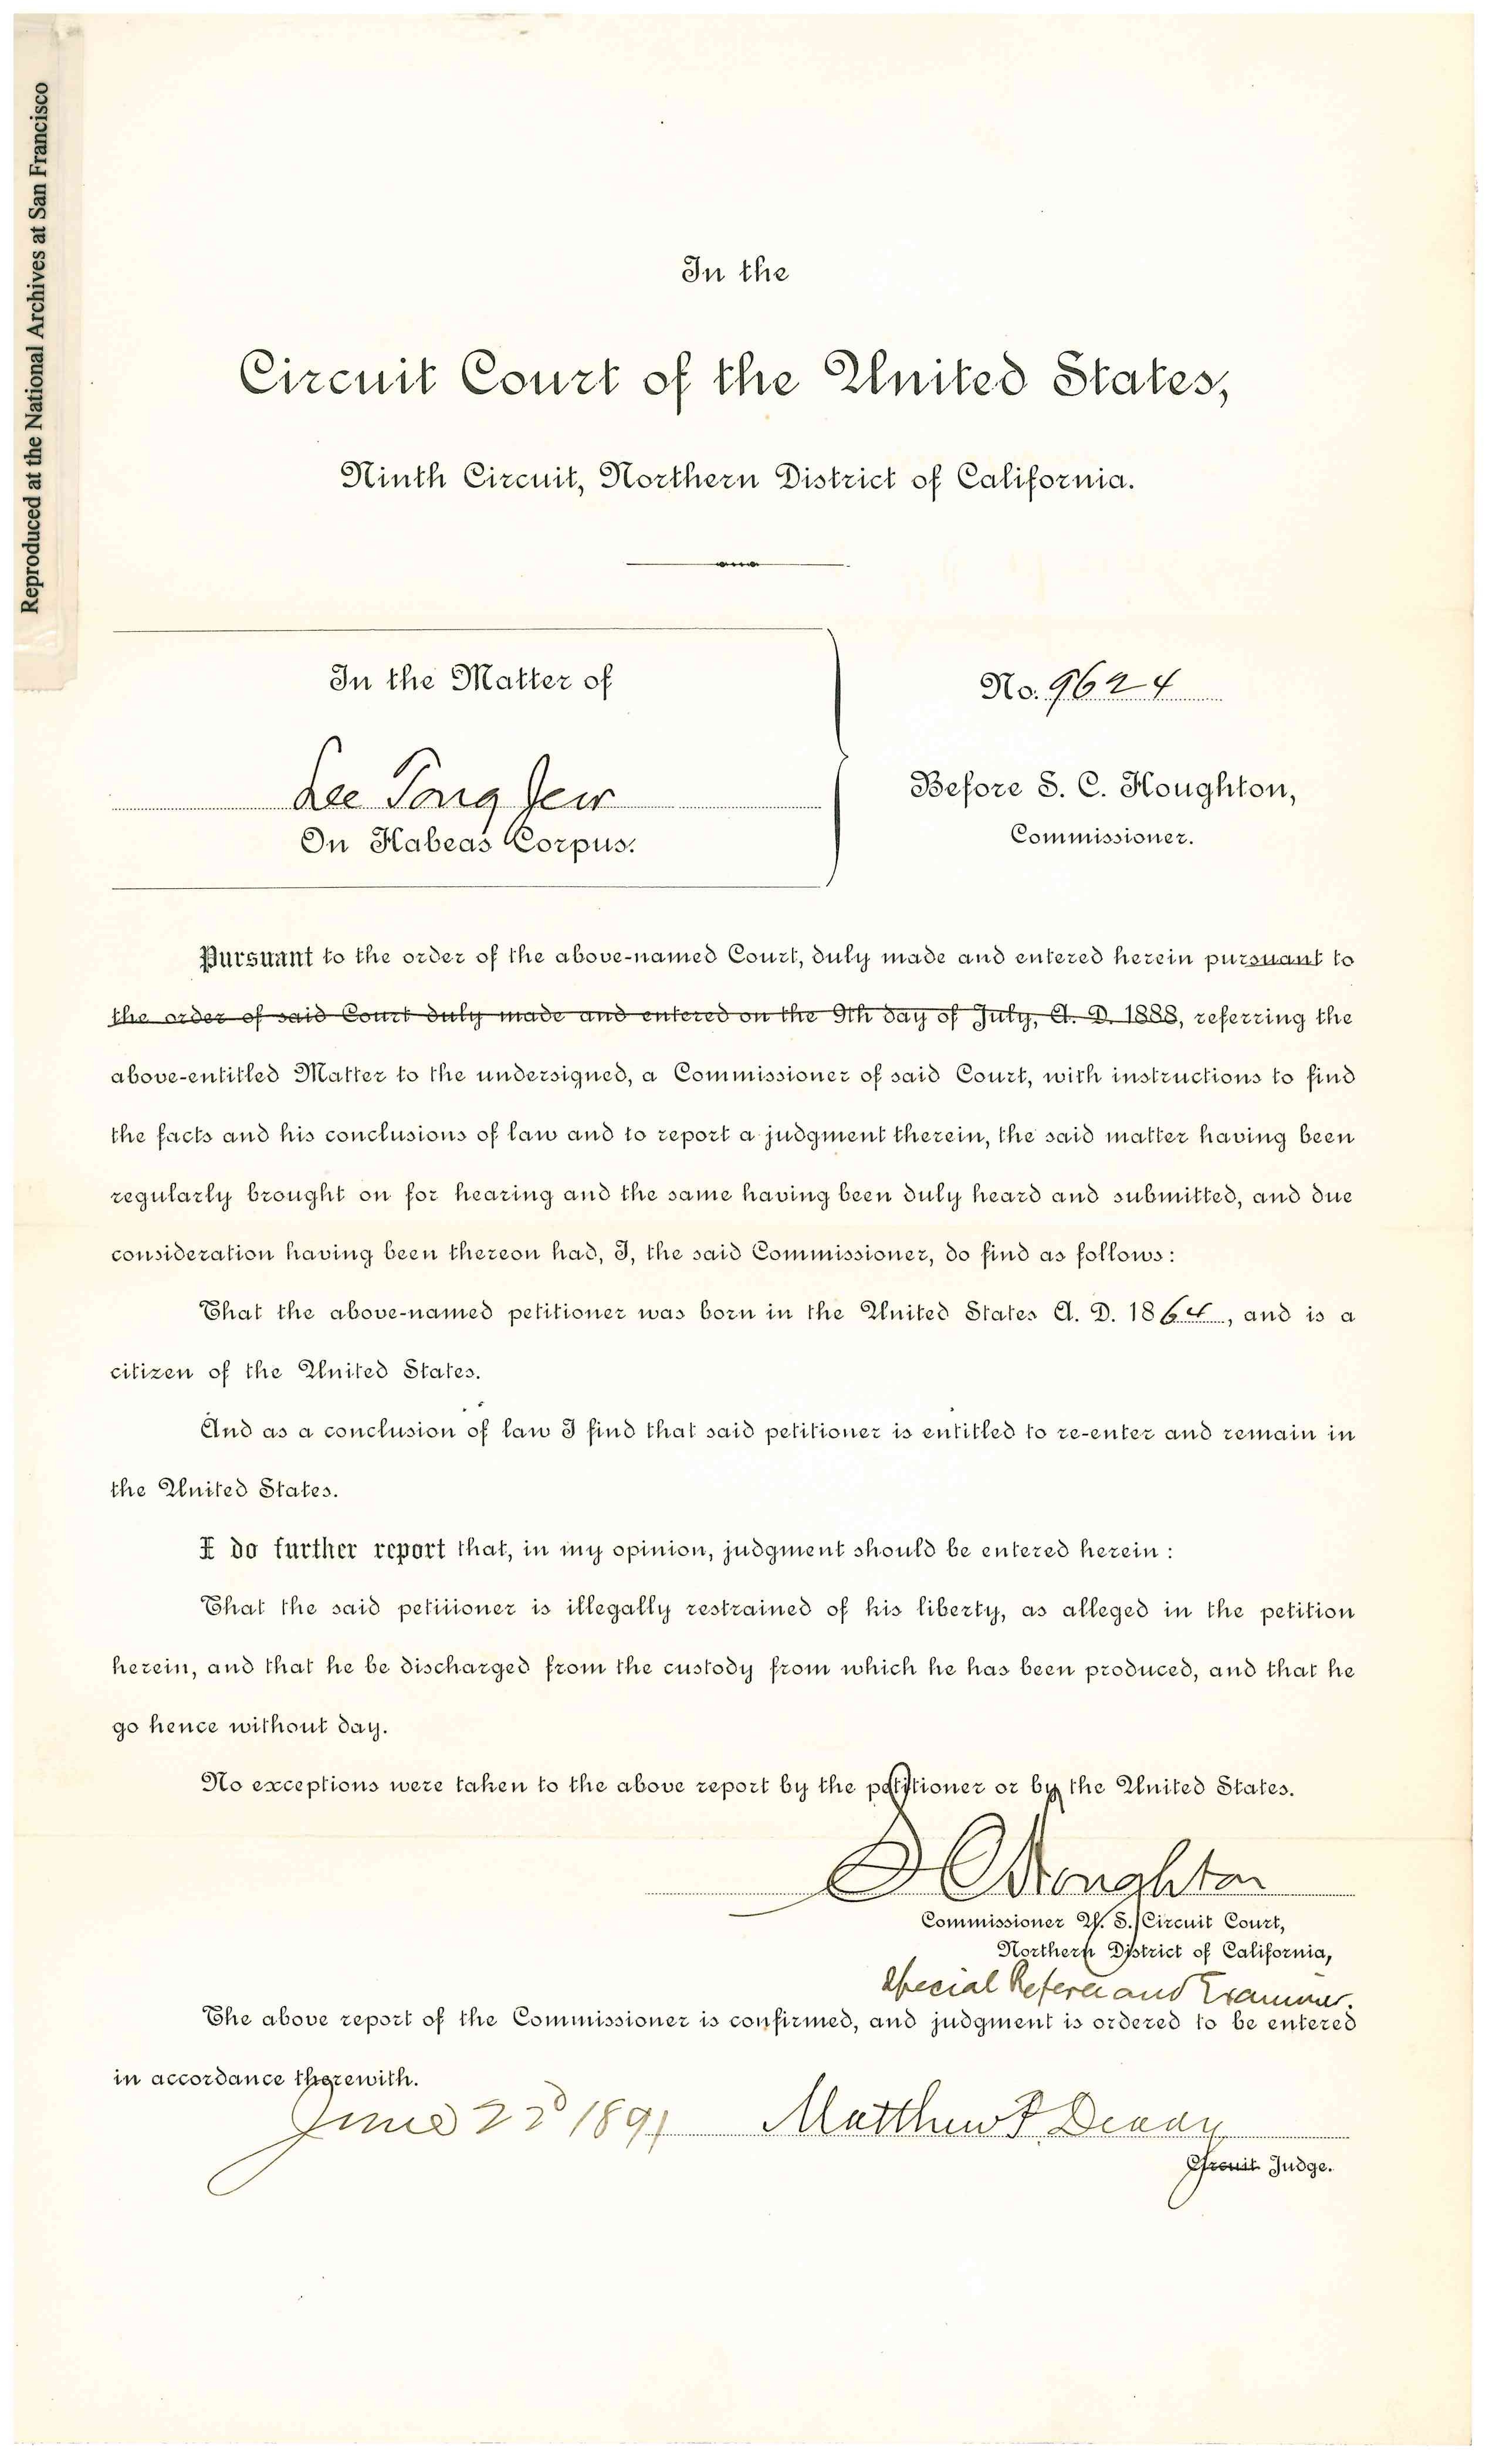 Reproduced at the National Archives at San Francisco
In the
Circuit Court of the United States,
Ninth Circuit, Northern District of California.
In the Matter of
Lee Tong Jew
On Habeas Corpus.
No. 9624
Before S. C. Houghton,
Commissioner.
Pursuant to the order of the above-named Court, duly made and entered herein pursuant to
the order of said Court duly made and entered on the 9th day of July, A. D. 1888, referring the
above-entitled Matter to the undersigned, a Commissioner of said Court, with instructions to find
the facts and his conclusions of law and to report a judgment therein, the said matter having been
regularly brought on for hearing and the same having been duly heard and submitted, and due
consideration having been thereon had, I, the said Commissioner, do find as follows:
That the above-named petitioner was born in the United States A. D. 1864, and is a
citizen of the United States.
And as a conclusion of law I find that said petitioner is entitled to re-enter and remain in
the United States.
I do further report that, in my opinion, judgment should be entered herein:
That the said petitioner is illegally restrained of his liberty, as alleged in the petition
herein, and that he be discharged from the custody from which he has been produced, and that he
go hence without day.
No exceptions were taken to the above report by the petitioner or by the United States.
S C Houghton
Commissioner U. S. Circuit Court,
Northern District of California,
Special Referee and Examiner.
The above report of the Commissioner is confirmed, and judgment is ordered to be entered
in accordance therewith.
June 22d 1891 Matthew P Deady
Circuit Judge.